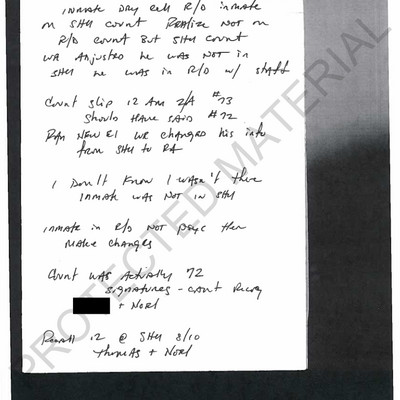 inmate Dry cell R/D inmate
on SHU count Realize not on
R/D count but SHU count
we Adjusted he was not in
SHU he was in R/D w/ staff
Count slip 12 Am Z/A #73
Should have said #72
Ran New E1 we changed his info
from SHU to RA
I Don't Know I wasn't there
inmate was not in SHU
inmate in R/D not then
make changes
Count was Actually 72
signatures - can't
+ Noel
12 @ SHU 8/10
Thomas + Noel
PROTECTED MATERIAL